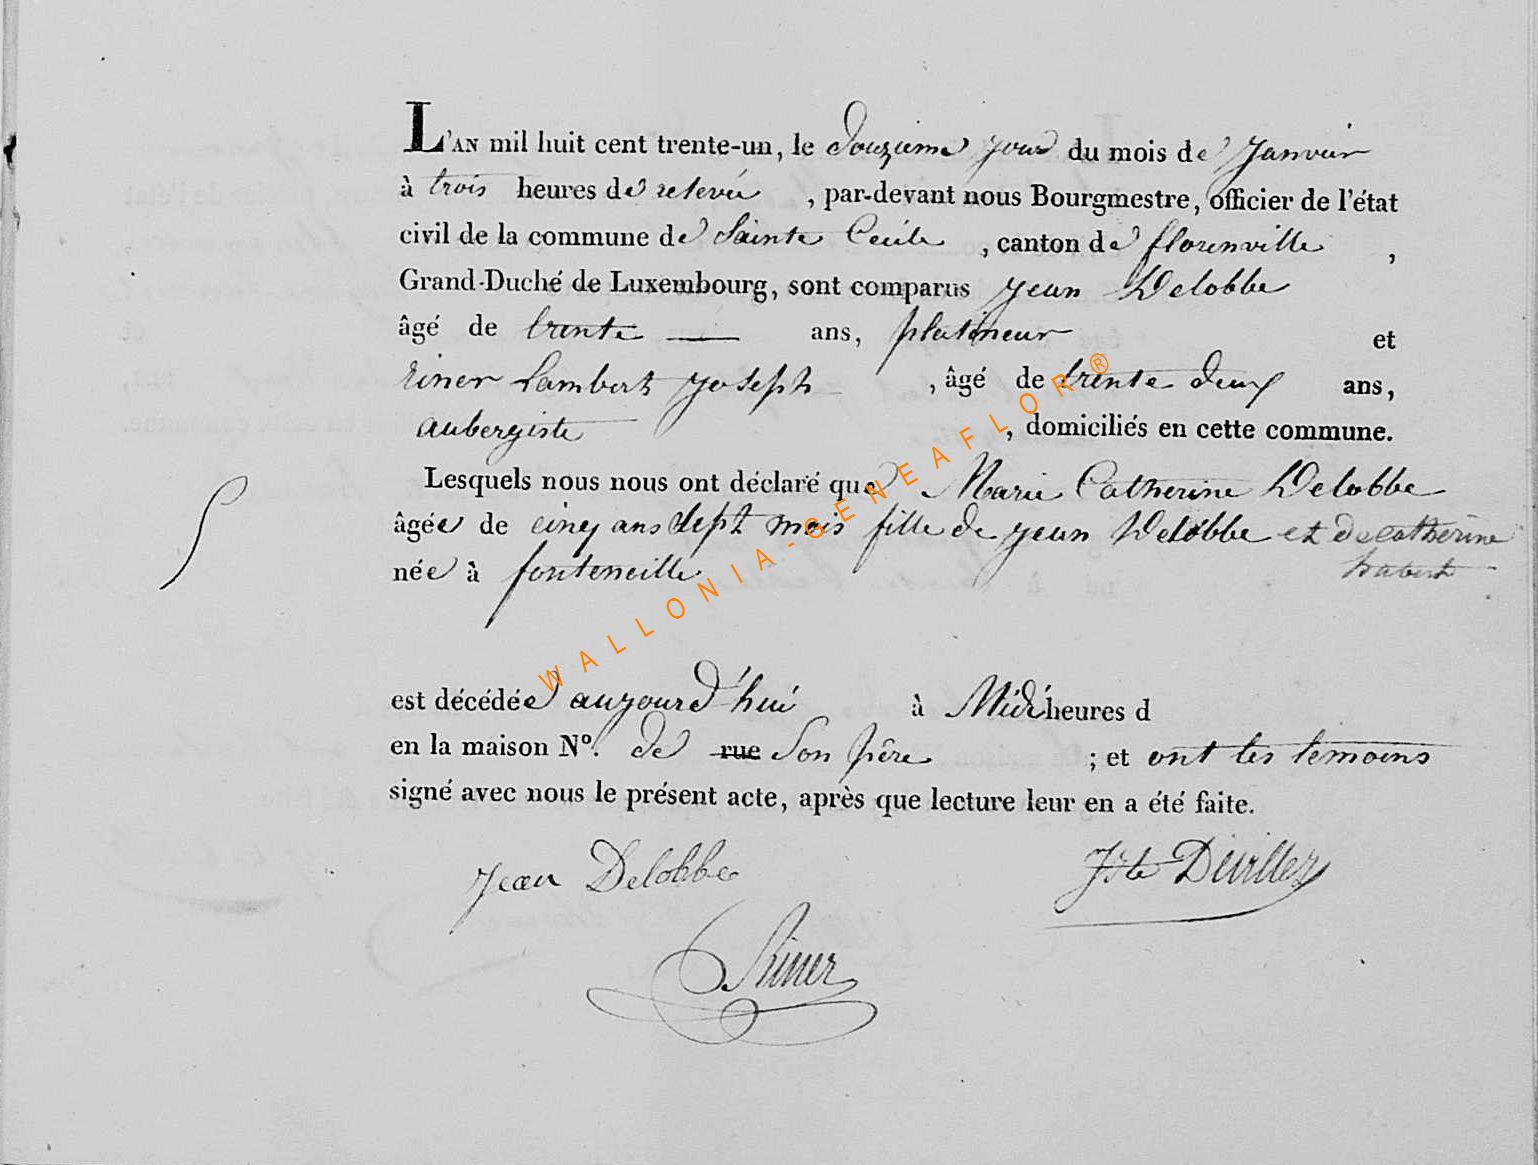 L'AN mil huit cent trente-un, le douzieme jour du mois de janvier
à trois heures de relevée , par-devant nous Bourgmestre, officier de l'état
civil de la commune de Sainte Cecile , canton de florenville ,
Grand-Duché de Luxembourg, sont comparus jean Delobbe
âgé de trente — ans, platineur et
riner Lambert joseph , âgé de trente deux ans,
aubergiste , domiciliés en cette commune.
Lesquels nous nous ont déclaré que Marie Catherine Delobbe
âgée de cinq ans sept mois fille de jean Delobbe et de catherine
née à fonteneille hubert
est décédée aujourd'hui à Midi heures d
en la maison N°. de rue son père ; et ont les temoins
signé avec nous le présent acte, après que lecture leur en a été faite.
Jean Delobbe Devillez
Riner
WALLONIA-GENEAFLOR ®